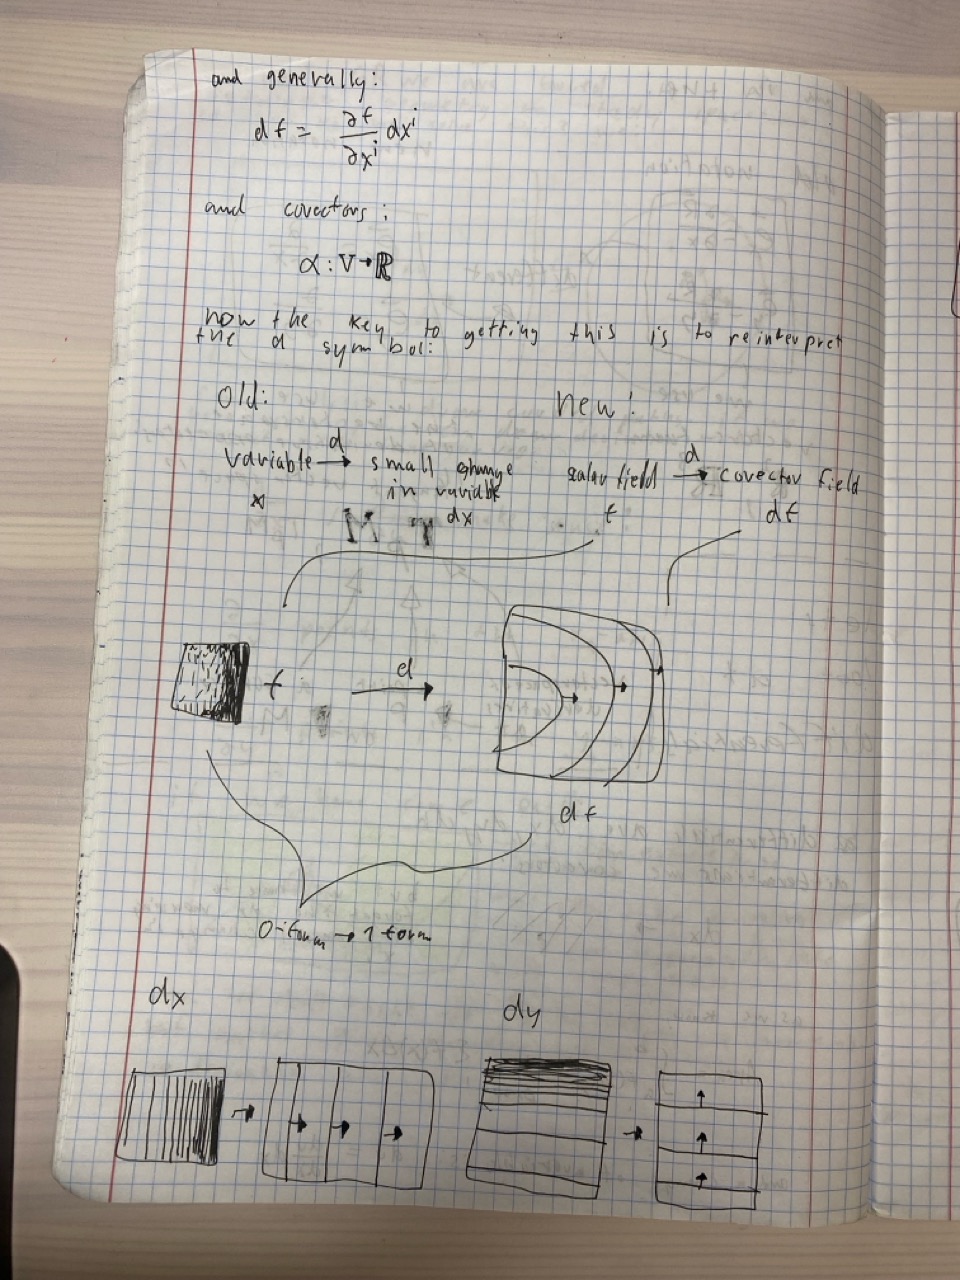 and generally:
df = ∂f/∂xⁱ dxⁱ
and covectors:
α : V → ℝ
now the key to getting this is to reinterpret
the d symbol:
Old: New!
variable d→ small change in variable
scalar field d→ covector field
x dx
f df
f d→
df
0-form → 1 form
dx dy